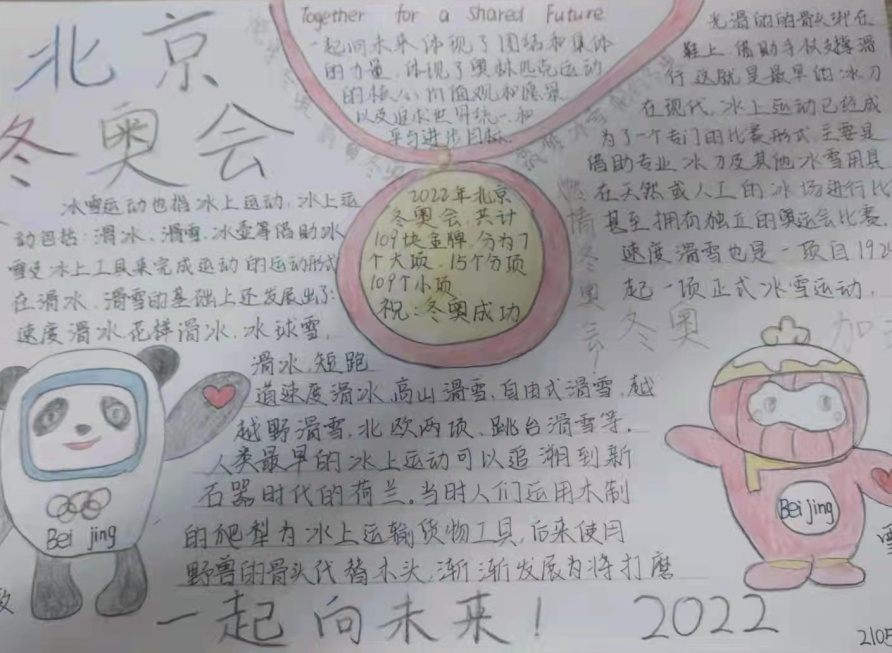 北京
冬奥会
Together for a Shared Future
一起向未来体现了团结和集体
的力量，体现了奥林匹克运动
的核心价值观和愿景
以及追求世界统一和
平与进步目标
2022年北京
冬奥会，共计
109块金牌，分为7
个大项，15个分项
109个小项
祝：冬奥成功
冰雪运动也指冰上运动，冰上运
动包括：滑冰、滑雪、冰壶等借助冰
雪或冰上工具来完成运动的运动形式
在滑冰、滑雪的基础上还发展出了：
速度滑冰花样滑冰、冰球雪，
滑冰、短跑
道速度滑冰、高山滑雪、自由式滑雪，越
越野滑雪、北欧两项、跳台滑雪等.
人类最早的冰上运动可以追溯到新
石器时代的荷兰，当时人们运用木制
的爬犁为冰上运输货物工具，后来使用
野兽的骨头代替木头，渐渐发展为将打磨
光滑的的骨头绑在
鞋上，借助手杖支撑滑
行这就是最早的冰刀
在现代，冰上运动已经成
为了一个专门的比赛形式，主要是
借助专业冰刀及其他冰雪用具
在天然或人工的冰场进行比
甚至拥有独立的奥运会比赛，
速度滑雪也是一项自192
起一项正式冰雪运动，
燃情冬奥会！
冬奥 加
Bei jing
Beijing
雪
敦
一起向未来！ 2022
2105